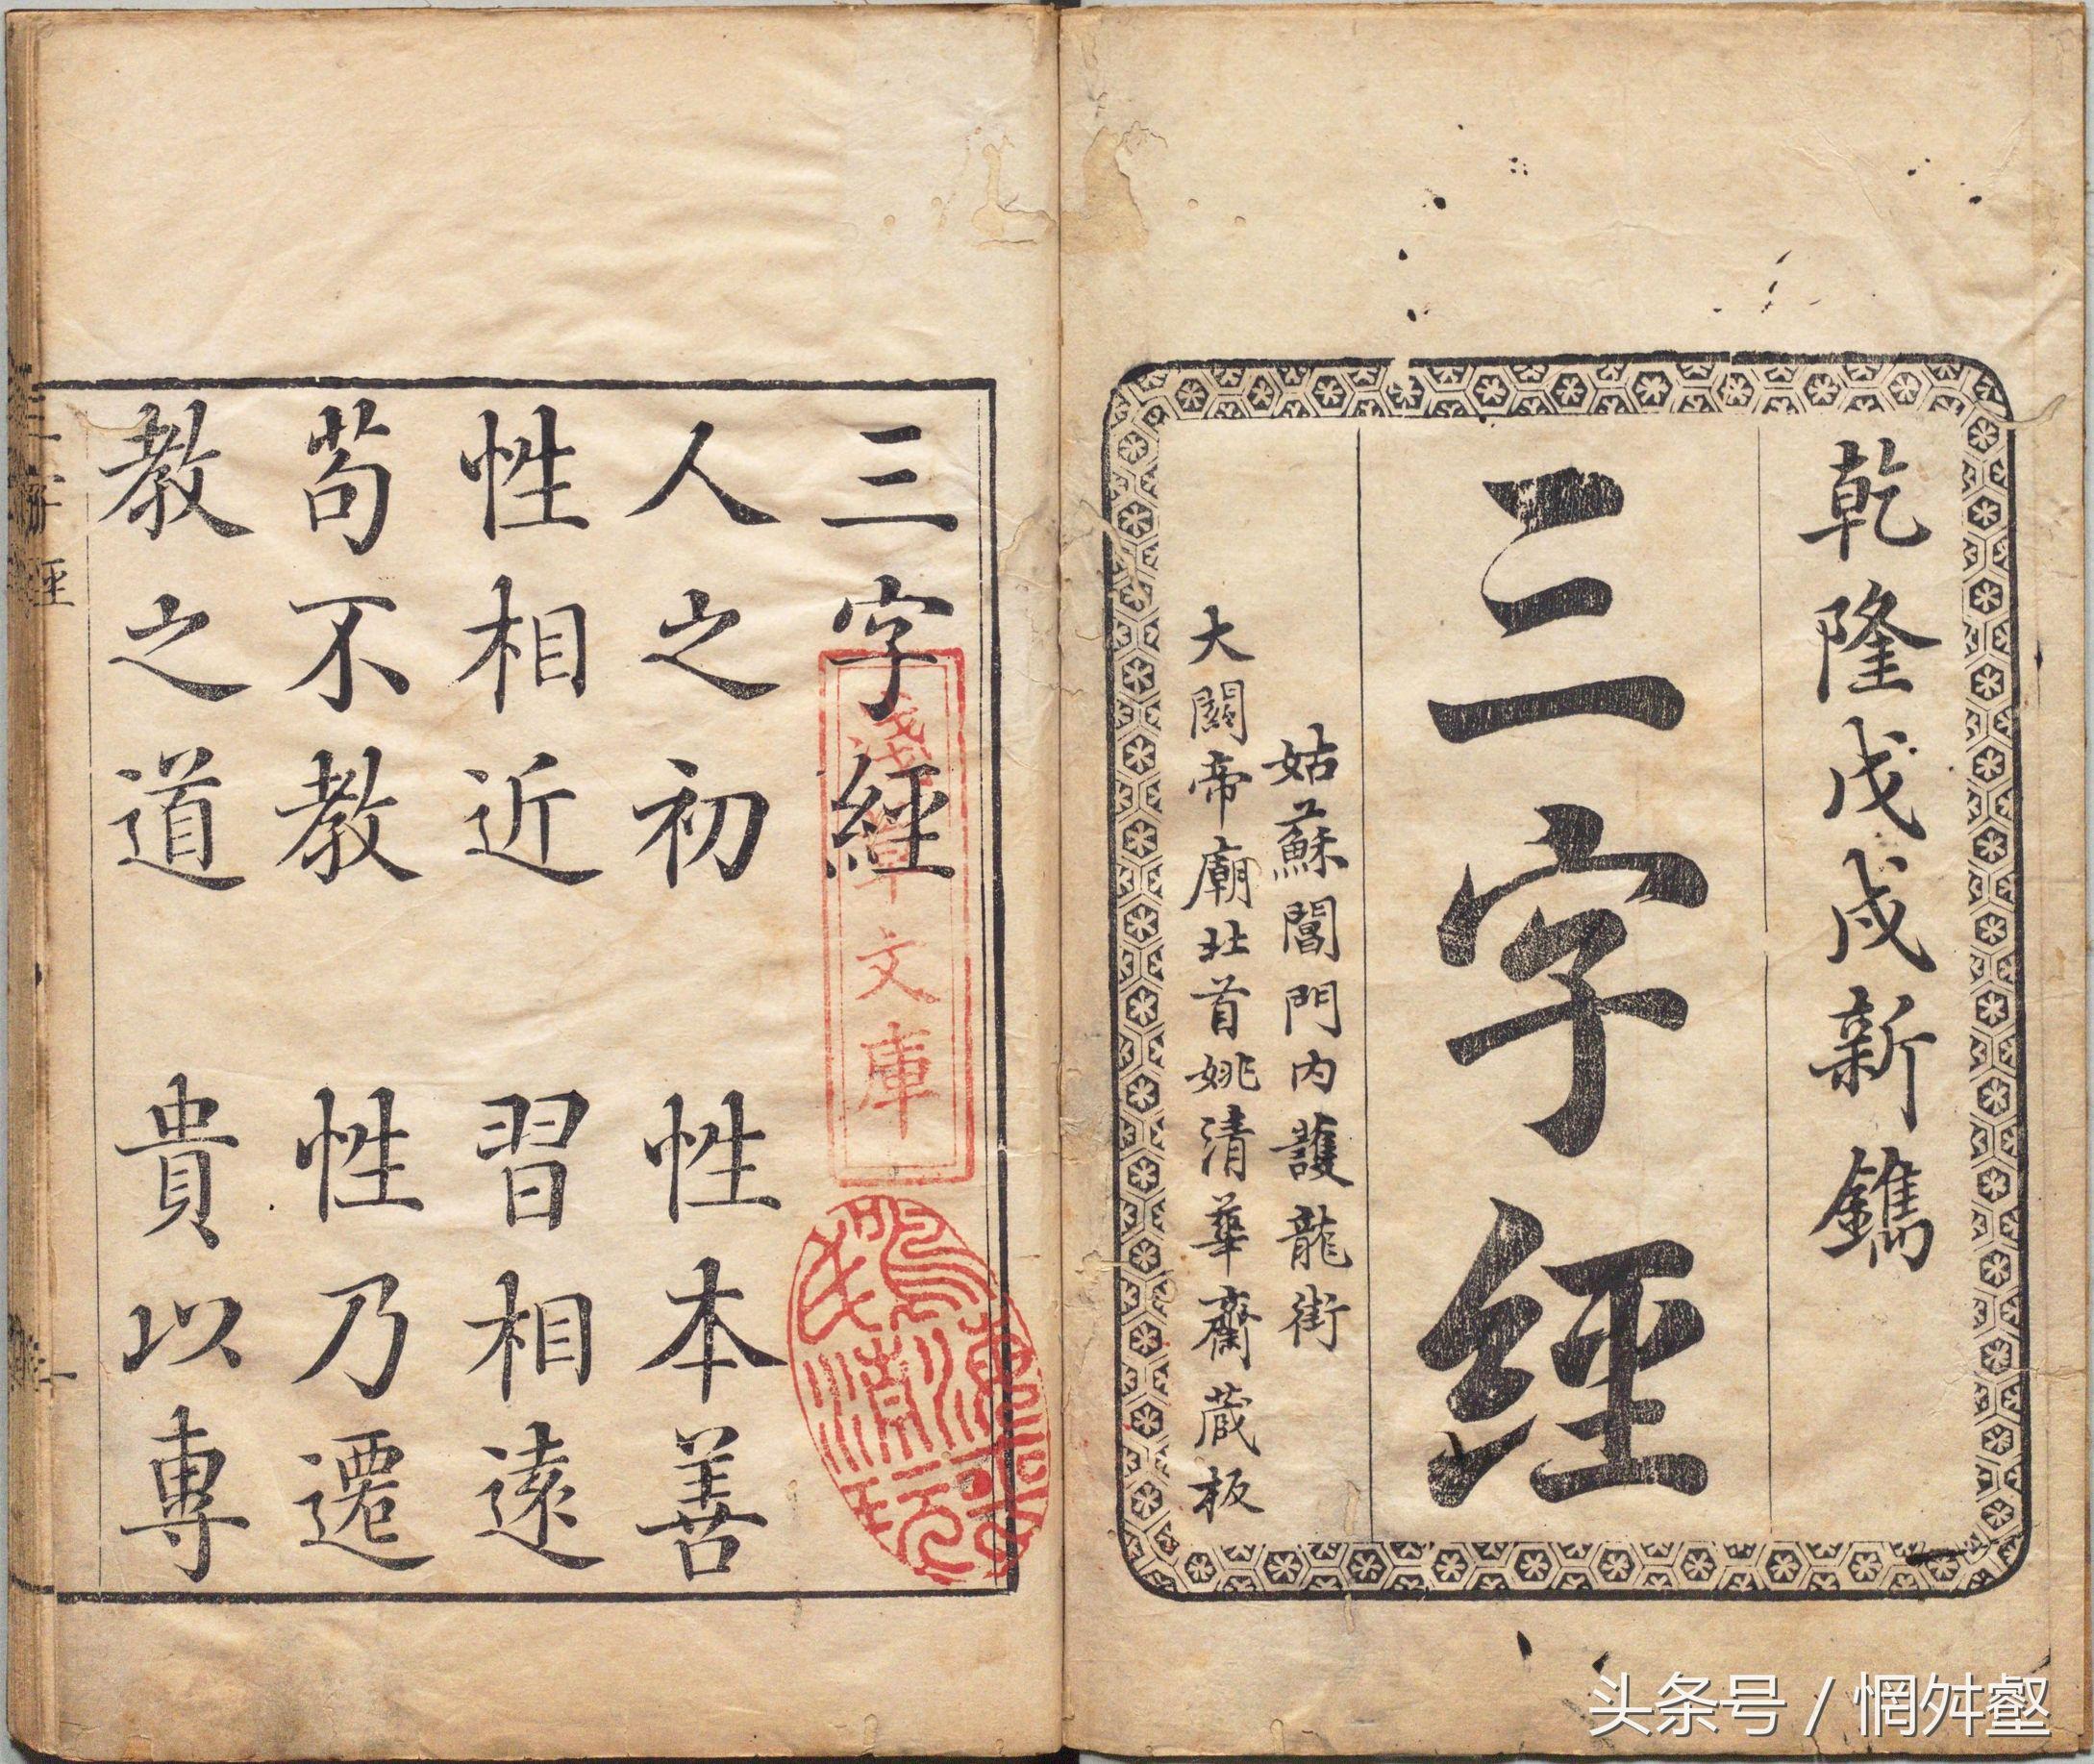 乾隆戊戌新鐫
三字經
姑蘇閶門內護龍街
大關帝廟北首姚清華齋藏板
三字經
人之初　性本善
性相近　習相遠
茍不教　性乃遷
教之道　貴以專
淺草文庫
三字經
一
头条号 / 惘舛壑